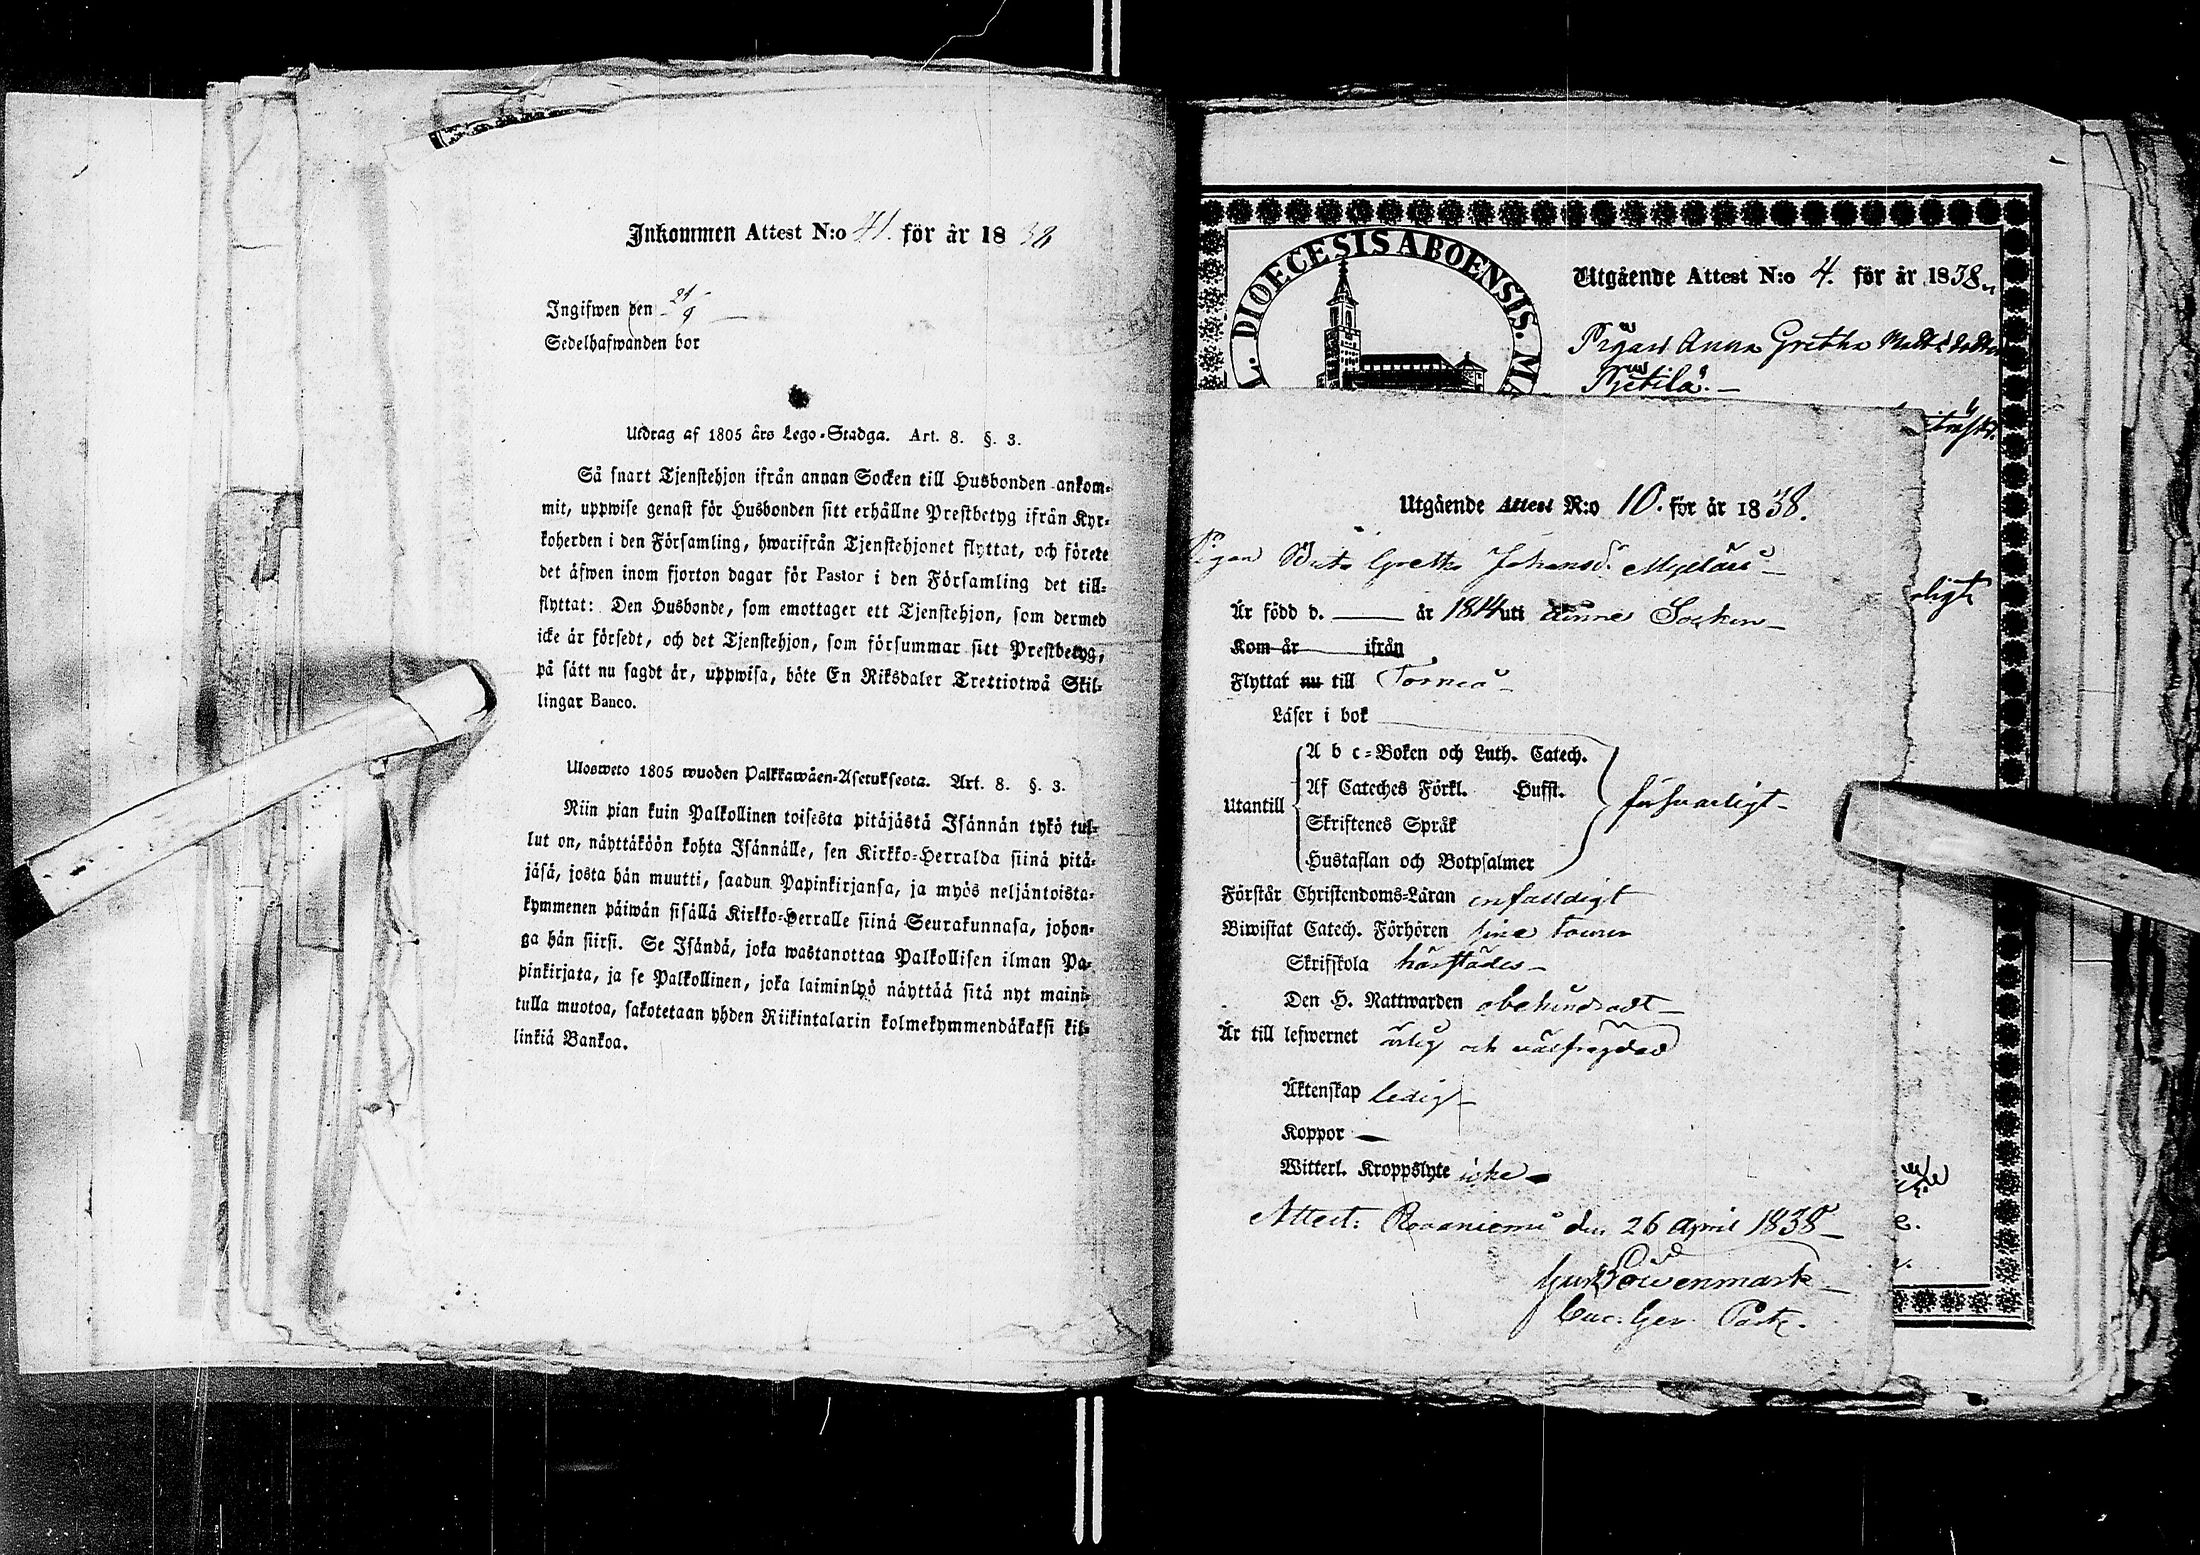 Inkommen Attest N:o 41. för år 1838
Ingifwen den 21/9
Sedelhafwanden bor
Utdrag af 1805 års Lego-Stadga. Art. 8. §. 3.
Så snart Tjenstehjon ifrån annan Socken till Husbonden ankom-
mit, uppwise genast för Husbonden sitt erhållne Prestbetyg ifrån Kyr-
koherden i den Församling, hwarifrån Tjenstehjonet flyttat, och förete
det äfwen inom fjorton dagar för Pastor i den Församling det till-
flyttat: Den Husbonde, som emottager ett Tjenstehjon, som dermed
icke är försedt, och det Tjenstehjon, som försummar sitt Prestbetyg,
på sätt nu sagdt är, uppwisa, böte En Riksdaler Trettiotwå Skil-
lingar Banco.
Ulosweto 1805 wuoden Palkkawäen-Asetuksesta. Art. 8. §. 3.
Niin pian kuin Palkollinen toisesta pitäjästä Isännän tykö tul-
lut on, näyttäköön kohta Isännälle, sen Kirkko-Herralda siinä pitä-
jäsä, josta hän muutti, saadun Papinkirjansa, ja myös neljäntoista-
kymmenen päiwän sisällä Kirkko-Herralle siinä Seurakunnasa, johon-
ga hän siirsi. Se Isändä, joka wastanottaa Palkollisen ilman Pa-
pinkirjata, ja se Palkollinen, joka laiminlyö näyttää sitä nyt maini-
tulla muotoa, sakotetaan yhden Riikintalarin kolmekymmendäkaksi kil-
linkiä Bankoa.
L. DIOECESIS ABOENSIS. MA
Utgående Attest N:o 4. för år 1838.
Pigan Anna Gretha Matts dotter
Pjetilä.
Utgående Attest N:o 10. för år 1838.
Pigan Brita Gretha Johansd.
Är född d. — år 1814 uti denne Socken
Kom år ifrån
Flyttar nu till Torneå
Läser i bok
A b c-Boken och Luth. Catech.
Utantill Af Cateches Förkl. Hufst. försvarligt
Skriftenes Språk
Hustaflan och Botpsalmer
Förstår Christendoms-Läran enfaldigt
Biwistat Catech. Förhören sine tourer
Skrifskola härstädes
Den H. Nattwarden obehindradt
Är till lefwernet ärlig och välfrägdad
Äktenskap ledig
Koppor —
Witterl. Kroppslyte icke
Attest: Rovaniemi den 26 April 1838